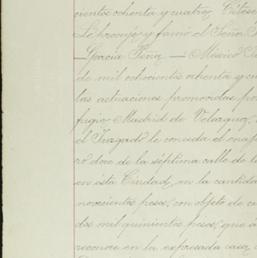 cientos ochenta y cuatro. Cítese
Lo proveyó y firmó el Señor
García Peña — México
de mil ochocientos ochenta y cu
las actuaciones promovidas po
fugio Madrid de Velasquez,
el Juzgado le conceda el
ro doce de la séptima calle de
en ésta Ciudad, en la cantida
novecientos pesos, con objeto de
dos mil quinientos pesos, que
reconoce en la expresada casa,